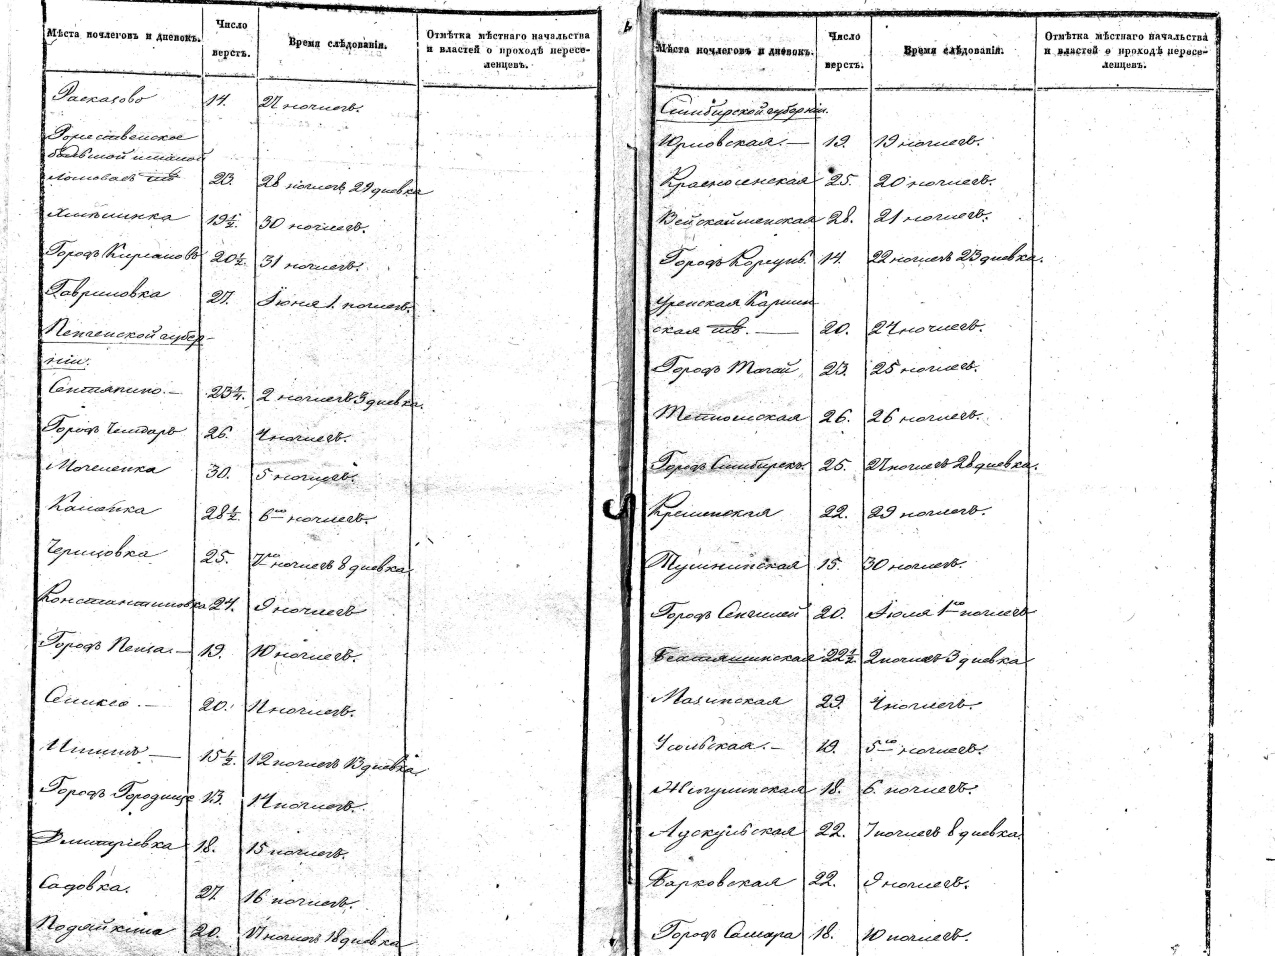 Мѣста ночлеговъ и дневокъ. Число верстъ. Время слѣдованія. Отмѣтка мѣстнаго начальства и властей о проходѣ пересе-ленцевъ.
Расказово 14. 27 ночлегъ.
Рожественское
большой
23. 28 ночлегъ, 29 дневка
19½. 30 ночлегъ.
Городъ Кирсановъ 20½. 31 ночлегъ.
Гавриловка 27. Іюня 1. ночлегъ.
Пензенской губер-
ніи.
23¼. 2 ночлегъ 3 дневка.
Городъ Чембаръ 26. 4 ночлегъ.
Мочелейка 30. 5 ночлегъ.
Каменка 28½. 6го ночлегъ.
25. 7го ночлегъ 8 дневка
Константиновка 24. 9 ночлегъ
Городъ Пенза. — 19. 10 ночлегъ.
20. 11 ночлегъ.
15½. 12 ночлегъ 13 дневка
Городъ Городище 13. 14 ночлегъ.
Дмитріевка 18. 15 ночлегъ.
Садовка. 27. 16 ночлегъ.
20. 17 ночлегъ 18 дневка
Мѣста ночлеговъ и дневокъ. Число верстъ. Время слѣдованія. Отмѣтка мѣстнаго начальства и властей о проходѣ пересе-ленцевъ.
Симбирской губерніи.
Юрловская. — 19. 19 ночлегъ.
25. 20 ночлегъ.
Вейскайменская 28. 21 ночлегъ.
Городъ Корсунь. 14. 22 ночлегъ 23 дневка.
Уренская Карлин
ская — 20. 24 ночлегъ.
Городъ Тагай 23. 25 ночлегъ.
Тетюшская 26. 26 ночлегъ.
Городъ Симбирскъ. 25. 27 ночлегъ 28 дневка.
Кременская 22. 29 ночлегъ.
Тушнинская 15. 30 ночлегъ.
Городъ Сенгилей 20. Іюля 1го ночлегъ
Бехтяшинская 22½. 2 ночлегъ 3 дневка
Мазинская 29. 4 ночлегъ.
Усольская. — 19. 5го ночлегъ.
Жигулинская 18. 6. ночлегъ.
Аскульская 22. 7 ночлегъ 8 дневка.
Барковская 22. 9 ночлегъ.
Городъ Самара 18. 10 ночлегъ.